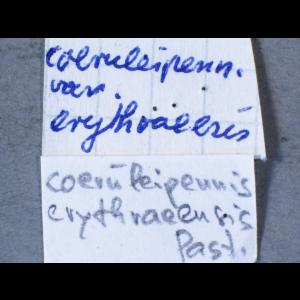 coeruleipenn.
var.
erythraeeris
coerūleipennis
erythraeensis
Past.